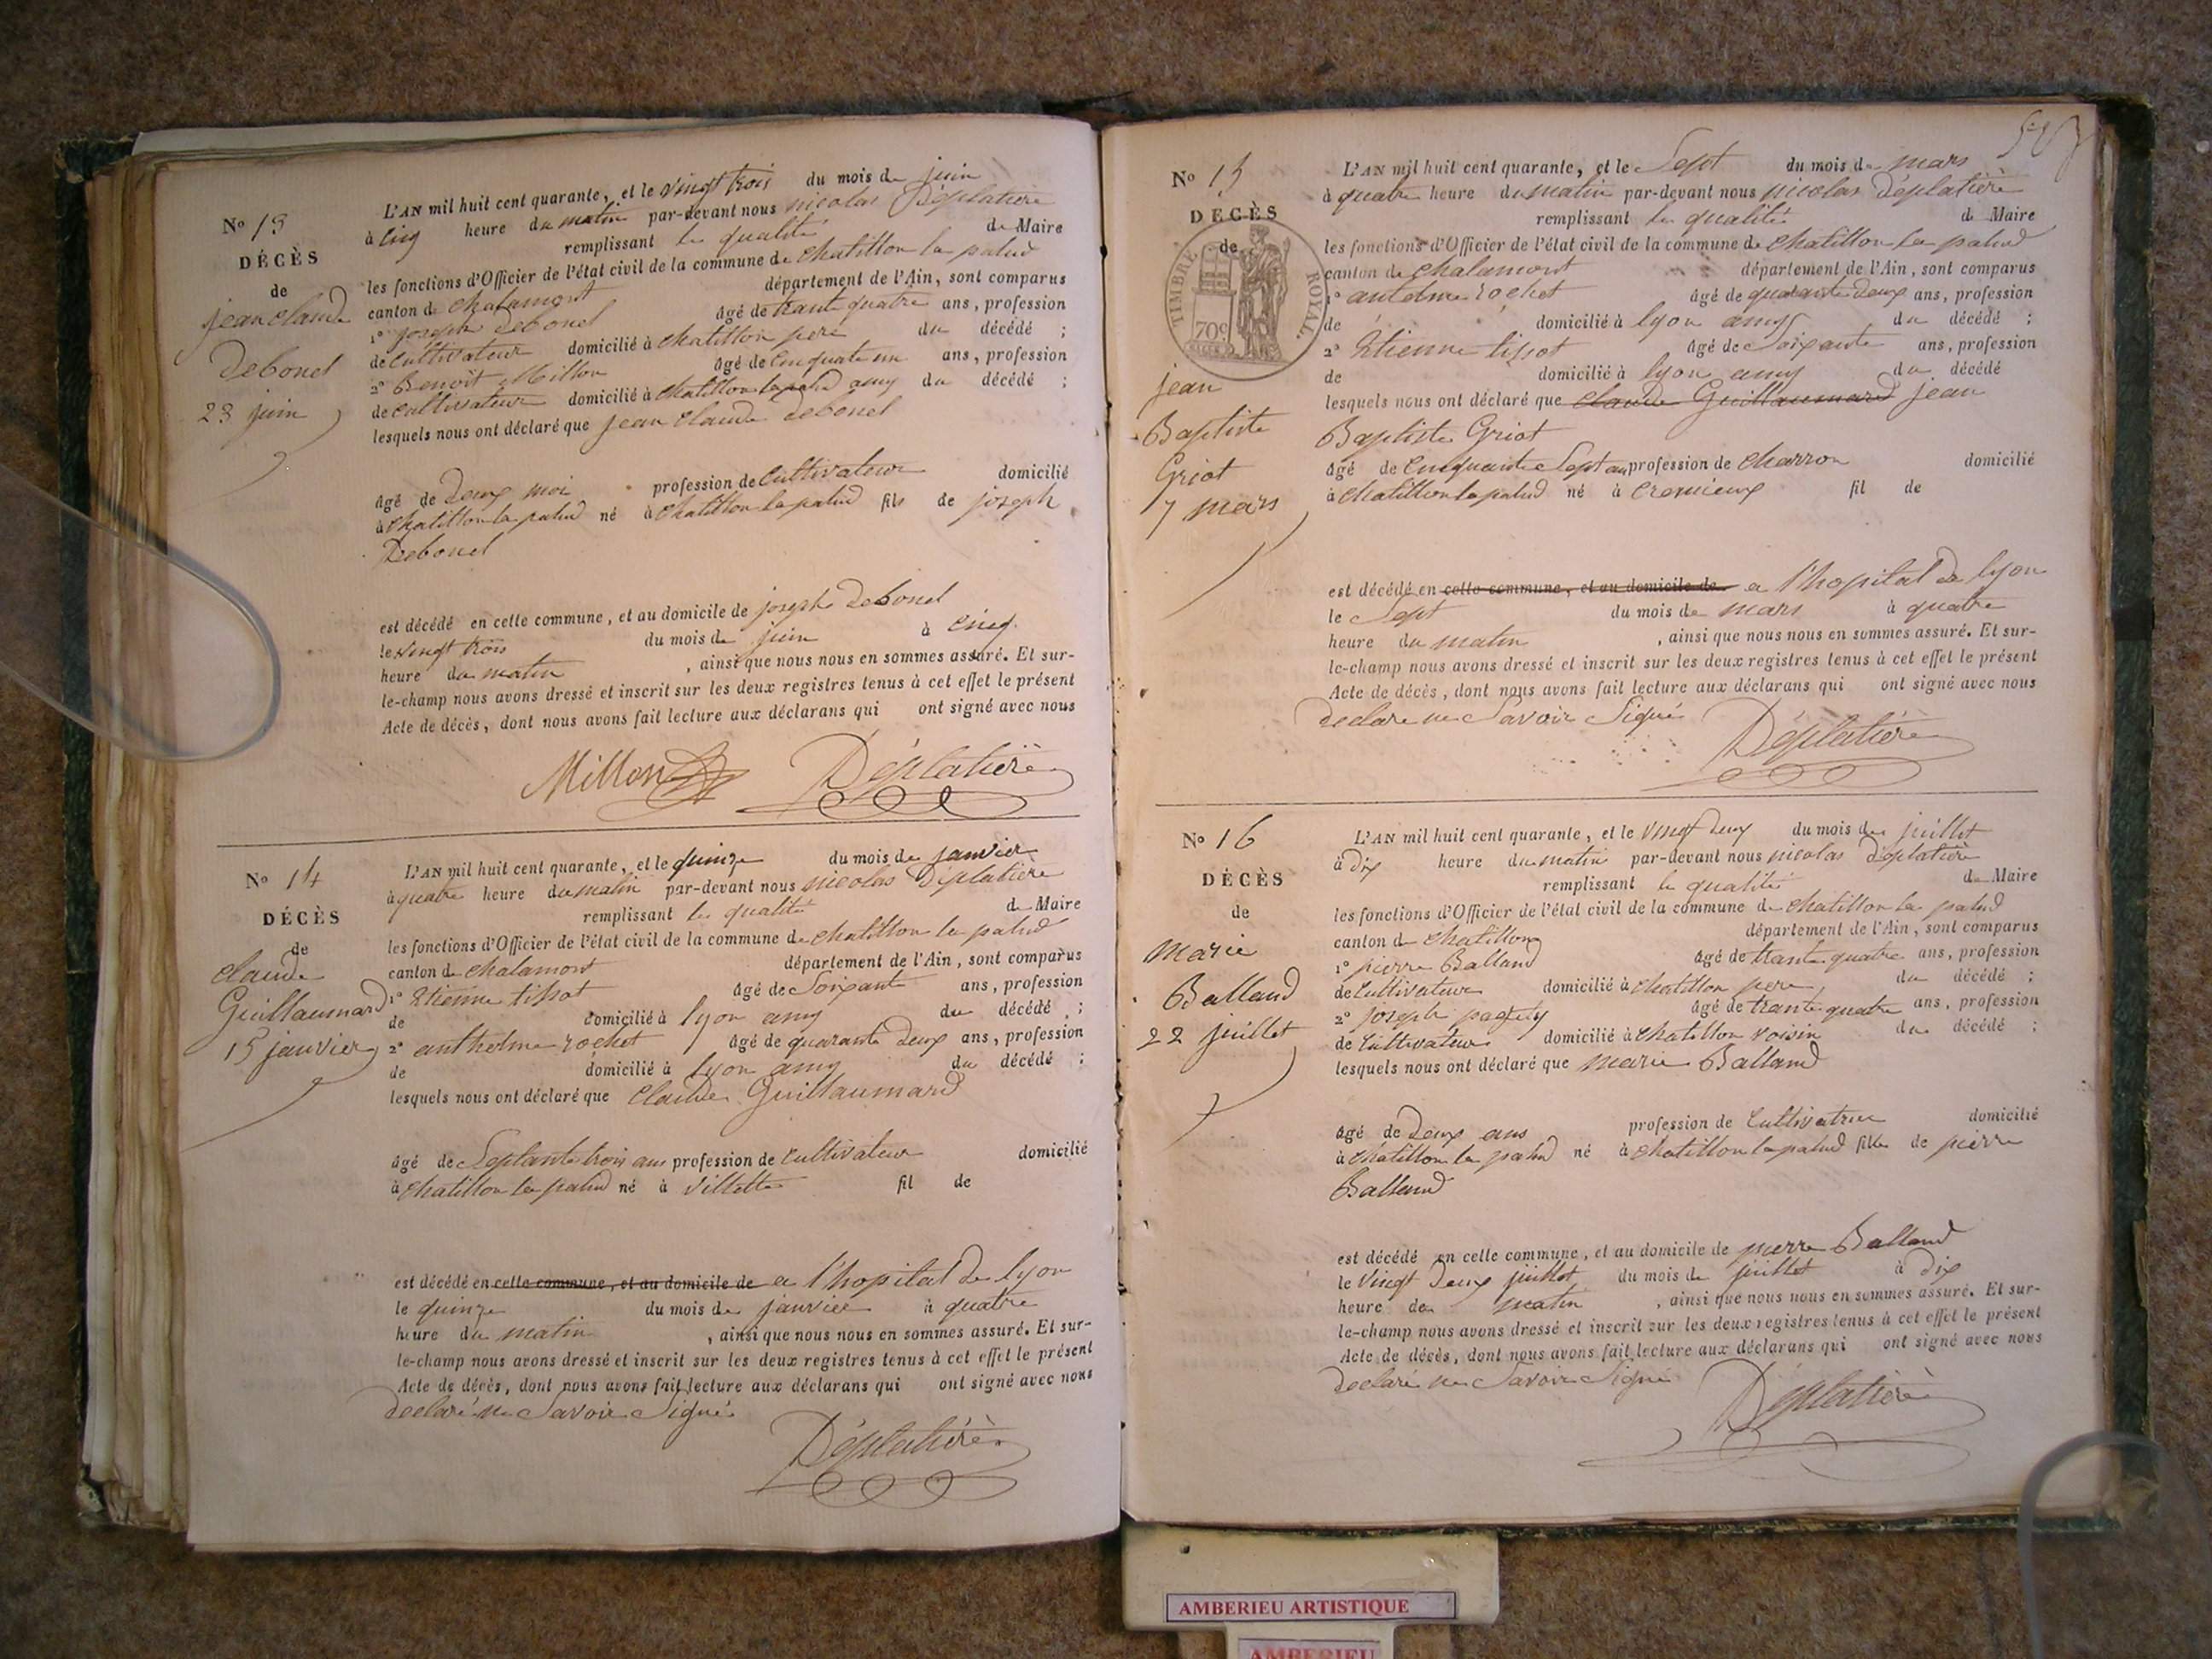 No 13
DÉCÈS
de
jean claude
Debonel
23 juin
L'AN mil huit cent quarante, et le vingt trois du mois de juin
à cinq heure du matin par-devant nous nicolas Déplatière
remplissant la qualité de Maire
les fonctions d'Officier de l'état civil de la commune de chatillon la palud
canton de chalamont département de l'Ain, sont comparus
1° joseph Debonel âgé de trante quatre ans, profession
de cultivateur domicilié à chatillon pere du décédé ;
2° Benoit Millon âgé de cinquate un ans, profession
de cultivateur domicilié à chatillon la palud amy du décédé ;
lesquels nous ont déclaré que jean claude Debonel
âgé de Deux moi profession de cultivateur domicilié
à chatillon la palud né à chatillon la palud fils de joseph
Debonel
est décédé en cette commune, et au domicile de joseph Debonel
le vingt trois du mois de juin à cinq
heure du matin, ainsi que nous nous en sommes assuré. Et sur-
le-champ nous avons dressé et inscrit sur les deux registres tenus à cet effet le présent
Acte de décès, dont nous avons fait lecture aux déclarans qui ont signé avec nous
Millon Déplatière
No 14
DÉCÈS
de
claude
Guillaumard
15 janvier
L'AN mil huit cent quarante, et le quinze du mois de janvier
à quatre heure du matin par-devant nous nicolas Déplatière
remplissant la qualité de Maire
les fonctions d'Officier de l'état civil de la commune de chatillon la palud
canton de chalamont département de l'Ain, sont comparus
1° Etienne tissot âgé de Soixante ans, profession
de domicilié à lyon amy du décédé ;
2° anthelme rochet âgé de quarante Deux ans, profession
de domicilié à lyon amy du décédé ;
lesquels nous ont déclaré que claude Guillaumard
âgé de Septante trois ans profession de cultivateur domicilié
à chatillon la palud né à villette fil de
est décédé en cette commune, et au domicile de a l'hopital de lyon
le quinze du mois de janvier à quatre
heure du matin, ainsi que nous nous en sommes assuré. Et sur-
le-champ nous avons dressé et inscrit sur les deux registres tenus à cet effet le présent
Acte de décès, dont nous avons fait lecture aux déclarans qui ont signé avec nous
declaré ne Savoir Signé
Déplatière
No 15
DÉCÈS
de
TIMBRE ROYAL.
70c
jean
Baptiste
Griot
7 mars
L'AN mil huit cent quarante, et le Sept du mois de mars
à quatre heure du matin par-devant nous nicolas Déplatière
remplissant la qualité de Maire
les fonctions d'Officier de l'état civil de la commune de chatillon la palud
canton de chalamont département de l'Ain, sont comparus
1° antelme rochet âgé de quarante Deux ans, profession
de domicilié à lyon amy du décédé ;
2° Etienne tissot âgé de Soixante ans, profession
de domicilié à lyon amy du décédé
lesquels nous ont déclaré que claude Guillaumard jean
Baptiste Griot
âgé de cinquante Sept an profession de charron domicilié
à chatillon la palud né à cremieux fil de
est décédé en cette commune, et au domicile de a l'hopital de lyon
le Sept du mois de mars à quatre
heure du matin, ainsi que nous nous en sommes assuré. Et sur-
le-champ nous avons dressé et inscrit sur les deux registres tenus à cet effet le présent
Acte de décès, dont nous avons fait lecture aux déclarans qui ont signé avec nous
declare ne Savoir Signé
Déplatière
No 16
DÉCÈS
de
marie
Balland
22 juillet
L'AN mil huit cent quarante, et le vingt Deux du mois de juillet
à Dix heure du matin par-devant nous nicolas Déplatière
remplissant la qualité de Maire
les fonctions d'Officier de l'état civil de la commune de chatillon la palud
canton de chatillon département de l'Ain, sont comparus
1° pierre Balland âgé de trante quatre ans, profession
de cultivateur domicilié à chatillon pere du décédé ;
2° joseph âgé de trante quatre ans, profession
de cultivateur domicilié à chatillon voisin du décédé ;
lesquels nous ont déclaré que marie Balland
âgé de Deux ans profession de cultivatrice domicilié
à chatillon la palud né à chatillon la palud fille de pierre
Balland
est décédé en cette commune, et au domicile de pierre Balland
le vingt Deux juillet du mois de juillet à Dix
heure de matin, ainsi que nous nous en sommes assuré. Et sur-
le-champ nous avons dressé et inscrit sur les deux registres tenus à cet effet le présent
Acte de décès, dont nous avons fait lecture aux déclarans qui ont signé avec nous
declaré ne Savoir Signé
Déplatière
AMBERIEU ARTISTIQUE
AMBERIEU